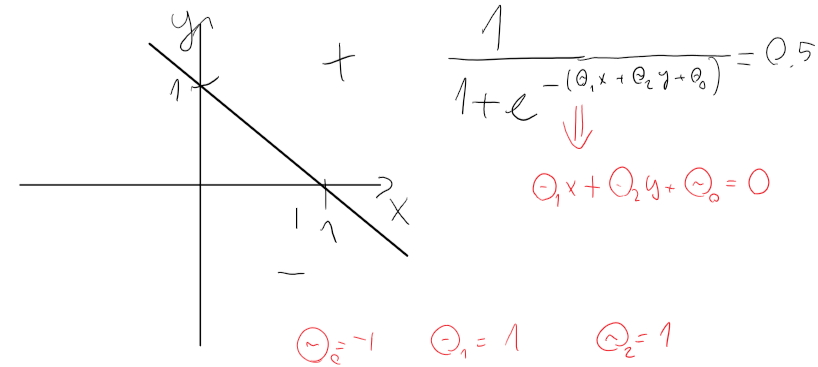 y
1
+
1 / (1 + e^-(θ₁x + θ₂y + θ₀)) = 0.5
⇓
θ₁x + θ₂y + θ₀ = 0
x
1
−
θ₀ = -1 θ₁ = 1 θ₂ = 1